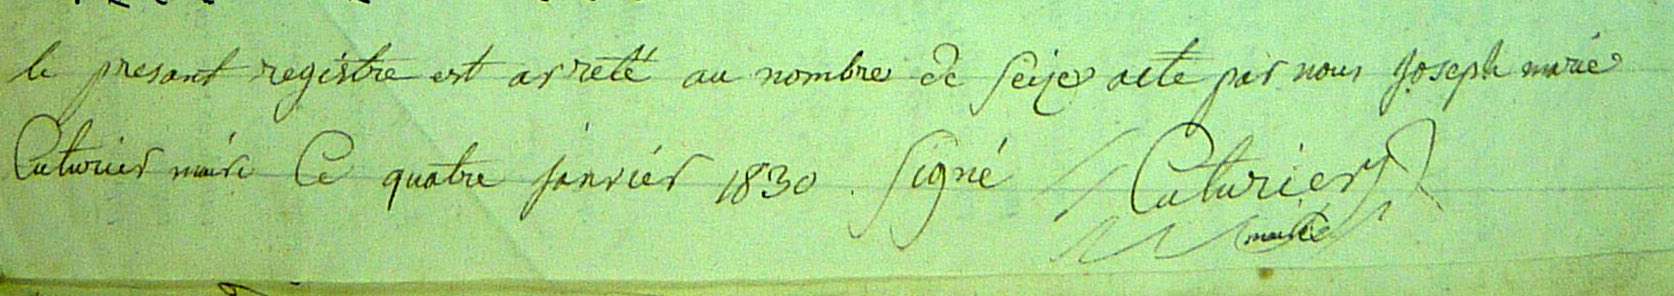 le presant registre est arreté au nombre de seize acte par nous Joseph marie
Cuturier maire Ce quatre janvier 1830. Signé Cuturier
maire